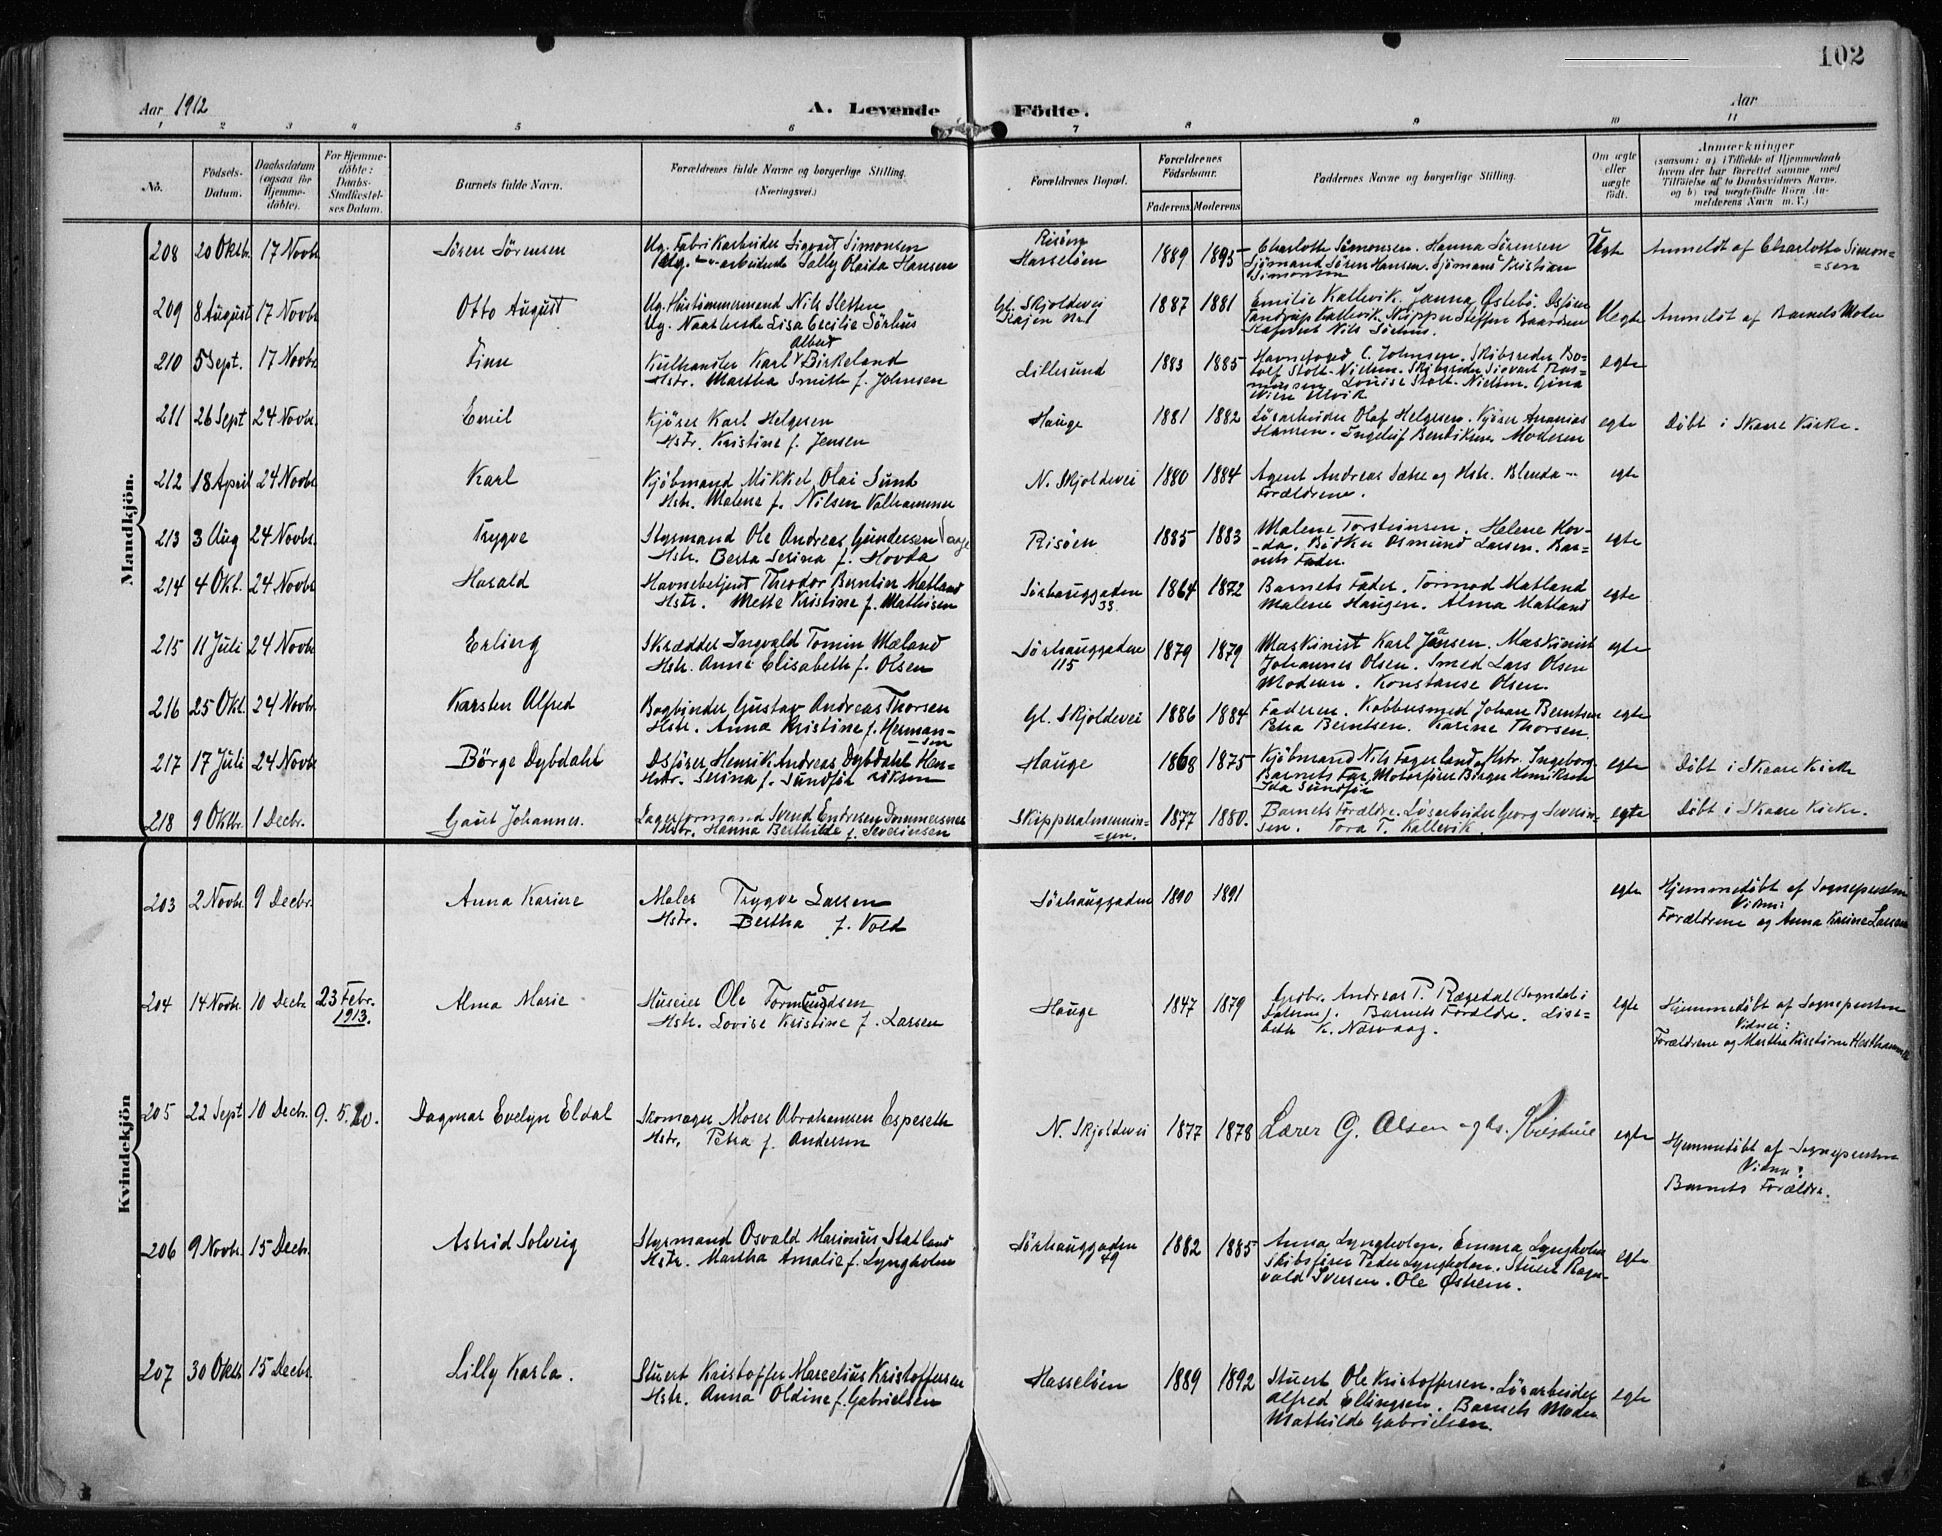 102
Aar 1912
A. Levende Födte.
Aar
1 2 3 4 5 6 7 8 9 10 11
No.
Födsels-
Datum.
Daabsdatum
(ogsaa for
Hjemme-
döbte).
For Hjemme-
döbte:
Daabs-
Stadfæstel-
ses Datum.
Barnets fulde Navn.
Forældrenes fulde Navne og borgerlige Stilling.
(Næringsvei.)
Forældrenes Bopæl.
Forældrenes
Födselsaar.
Faderens. Moderens.
Faddernes Navne og borgerlige Stilling.
Om ægte
eller
uægte
födt.
Anmærkninger
(saasom: a) i Tilfælde af Hjemmedaab
hvem der har forrettet samme, med
Tilföielse af to Daabsvidners Navne,
og b) ved uægtefödte Börn An-
melderens Navn m. V.)
Mandkjön.
208 20 Oktbr. 17 Novbr. Sören Sörensen
Ug. Fabrikarbeider Sigvart Simonsen
Ug. –"– arbeiderske Sally Olaida Hansen
Risöen
Hasselöen
1889 1895
Charlotte Simonsen. Hanna Sörensen
Sjömand Sören Hansen. Sjömand Kristian
Simonsen
Uegte
Anmeldt af Charlotte Simon-
=sen
209 8 August 17 Novbr Otto August
Ug. Hustömmermand Nils Sletten
Ug. Lisa Cecilie Sörhus
Gl. Skjoldevei
1887 1881
Emilie Kallevik. Janna Östebö.
Kallevik. Skipper Steffen Baardsen
Nils Sörhus.
Uegte
Anmeldt af Barnets Moder
210 5 Sept. 17 Novbr. Finn
Albert
Kulhandler Karl V Birkeland
Hstr. Martha Smith f. Johnsen
Lillesund
1883 1885
Havnefoged C. Johnsen. Skibsreder Bo-
Stolt-Nielsen. Skibsreder Sigvart Ras-
mussen. Louise Stolt-Nielsen. Gina
Ulvik
egte
211 26 Sept 24 Novbr. Emil
Kjörer Karl Helgesen
Hstr. Kristine f. Jensen
Hauge
1881 1882
Lösarbeider Olaf Helgesen. Kjörer Ananias
Hansen. Ingeleif Bendiksen. Moderen
egte
Döbt i Skaare Kirke.
212 18 April 24 Novbr. Karl
Kjöbmand Mikkel Olai Sund
Hstr. Malene f. Nilsen Valhammer
N. Skjoldevei
1880 1884
Agent Andreas Sætre og Hstr. Blenda –
Forældrene.
egte
213 3 Aug 24 Novbr. Trygve
Styrmand Ole Andreas Gundersen Vaage
Hstr. Berta Serina f. Hovda
Risöen
1885 1883
Malene Torsteinsen. Helene Hov-
-da. Bödker Osmund Larsen. Bar=
nets Fader.
egte
214 4 Okt. 24 Novbr. Harald
Havnebetjent Theodor Berntier Matland
Hstr. Mette Kristine f. Mathisen
Sörhauggaden
33.
1864 1872
Barnets Fader. Tormod Matland
Malene Haugen. Alma Matland
egte
215 11 Juli 24 Novbr. Erling
Skrædder Ingvald Tomin Mæland
Hstr. Anne Elisabeth f. Olsen
Sörhauggaden
115
1879 1879
Maskinist Karl Jansen. Maskinist
Johannes Olsen. Smed Lars Olsen
Moderen. Konstanse Olsen.
egte
216 25 Okt. 24 Novbr. Karsten Alfred
Bogbinder Gustav Andreas Thorsen
Hstr. Anna Kristine f. Herman-
-sen
Gl. Skjoldevei
1886 1884
Faderen. Kobbersmed Johan Berntsen
Petra Berntsen. Karine Thorsen.
egte
217 17 Juli 24 Novbr Börge Dybdahl
Dsförer Henrik Andreas Dybdahl Hen=
Hstr. Serina f. Sundför riksen
Hauge
1868 1875
Kjöbmand Nils Fagerland og Hstr. Ingeborg.
Barnets Far, Motorförer Birger Henriksen
Ida Sundför
egte
Döbt i Skaare Kirke
218 9 Oktbr. 1 Decbr. Gaut Johannes.
Lagerformand Svend Endresen Dommersnes
Hstr. Hanna Berthilde f. Severinsen
Skipperalmennin-
=gen.
1877 1880.
Barnets Forældre. Lösarbeider Georg Severin-
sen. Tora T. Kallevik.
egte
Döbt i Skaare Kirke.
Kvindekjön
203 2 Novbr. 9 Decbr. Anna Karine
Maler Trygve Larsen
Hstr. Bertha f. Vold
Sörhauggaden
1890 1891
egte
Hjemmedöbt af Sognepresten
Vidner:
Forældrene og Anna Karine Larsen
204 14 Novbr. 10 Decbr. 23 Febr.
1913.
Alma Marie
Huseier Ole Tormundsen
Hstr. Lovise Kristine f. Larsen
Hauge
1847 1879
Grdbr. Andreas P. Rægedal (Sogndal i
Barnets Forældre. Lisa-
beth K. Norvaag.
egte
Hjemmedöbt af Sognepresten
Vidner:
Forældrene og Martha Kristine Hesthammer
205 22 Sept. 10 Decbr. 9. 5. 20. Dagmar Evelyn Eldal
Skomager Moses Abrahamsen Espeseth
Hstr. Petra f. Andersen
N. Skjoldevei
1877 1878
Lærer G. Olsen og Hs. Kristine
egte
Hjemmedöbt af Sognepresten
Vidner:
Barnets Forældre.
206 9 Novbr. 15 Decbr. Astrid Solveig
Styrmand Osvald Marinius Statland
Hstr. Martha Amalie f. Lyngholm
Sörhauggaden
49
1882 1885
Anna Lyngholm. Emma Lyngholm
Skibsförer Peder Lyngholm. Stuert Ragn-
vald Iversen. Ole Östrem.
egte
207 30 Oktbr 15 Decbr. Lilly Karla.
Stuert Kristoffer Marcelius Kristoffersen
Hstr. Anna Oldine f. Gabrielsen
Hasselöen
1889 1892
Stuert Ole Kristoffersen. Lösarbeider
Alfred Ellingsen. Barnets Moder
Mathilde Gabrielsen.
egte